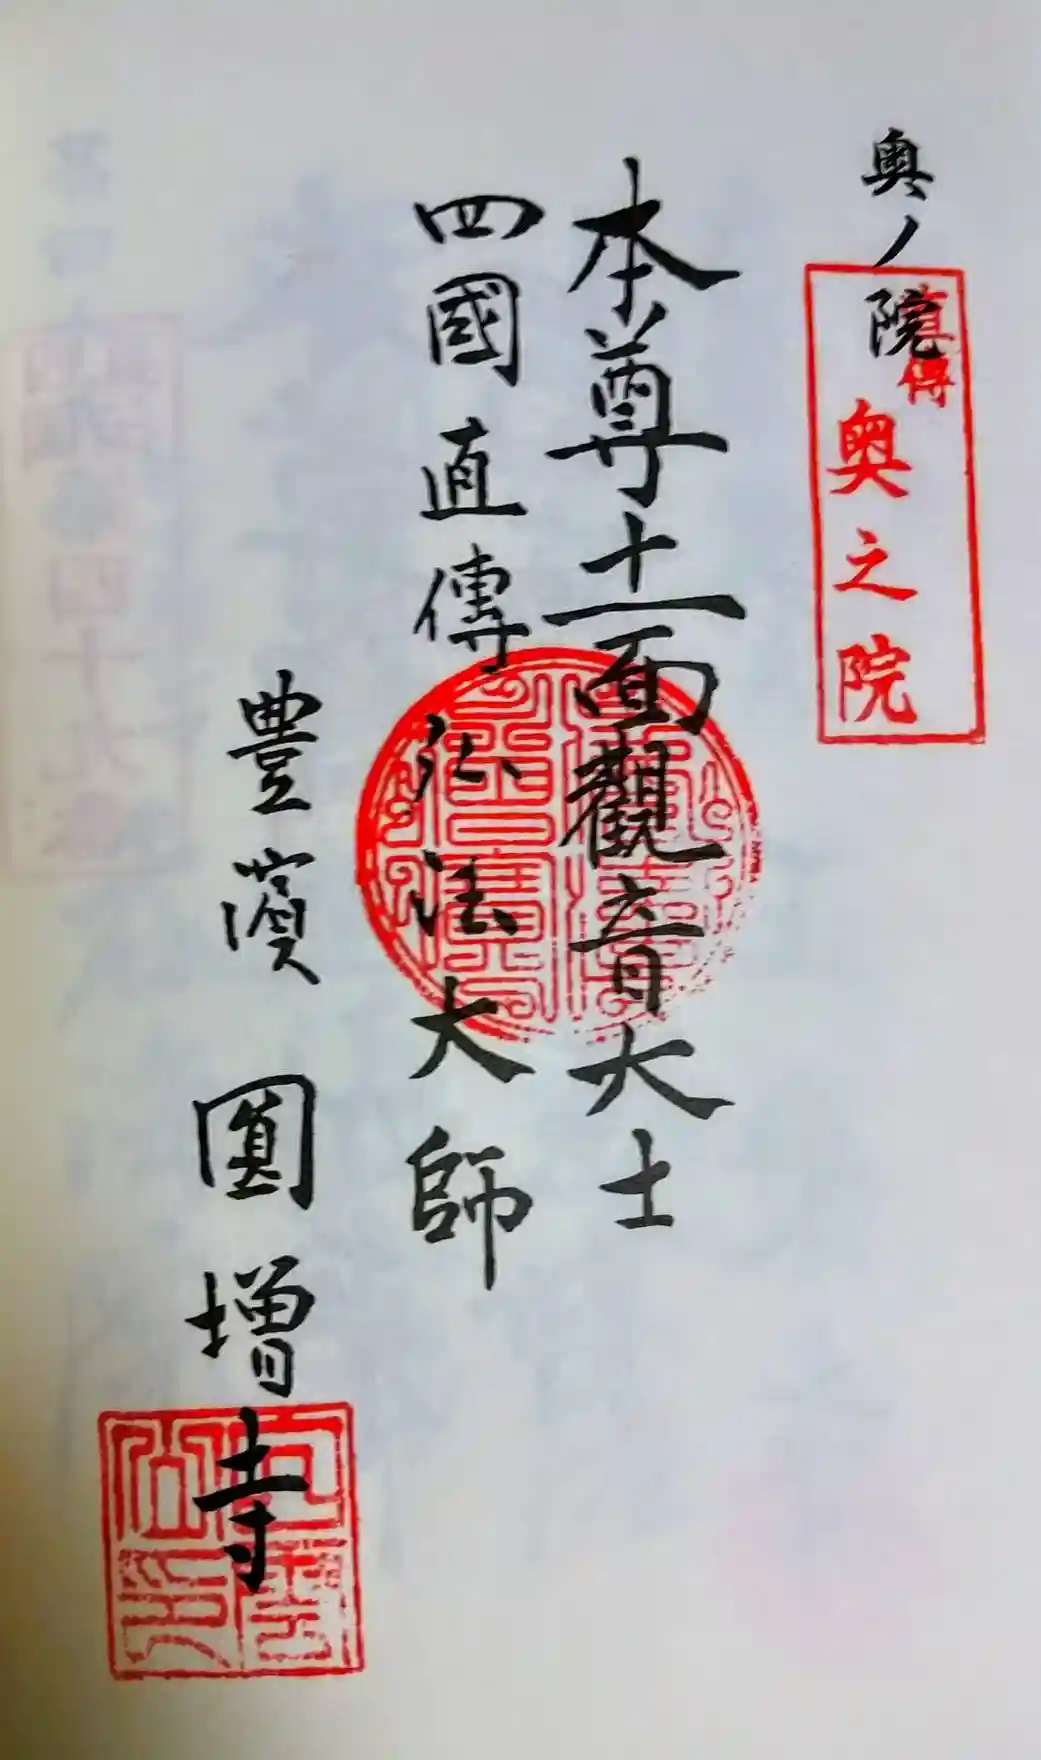 奥ノ院
直傳
奥之院
本尊十一面觀音大士
四國直傳弘法大師
豊濱 圓增寺